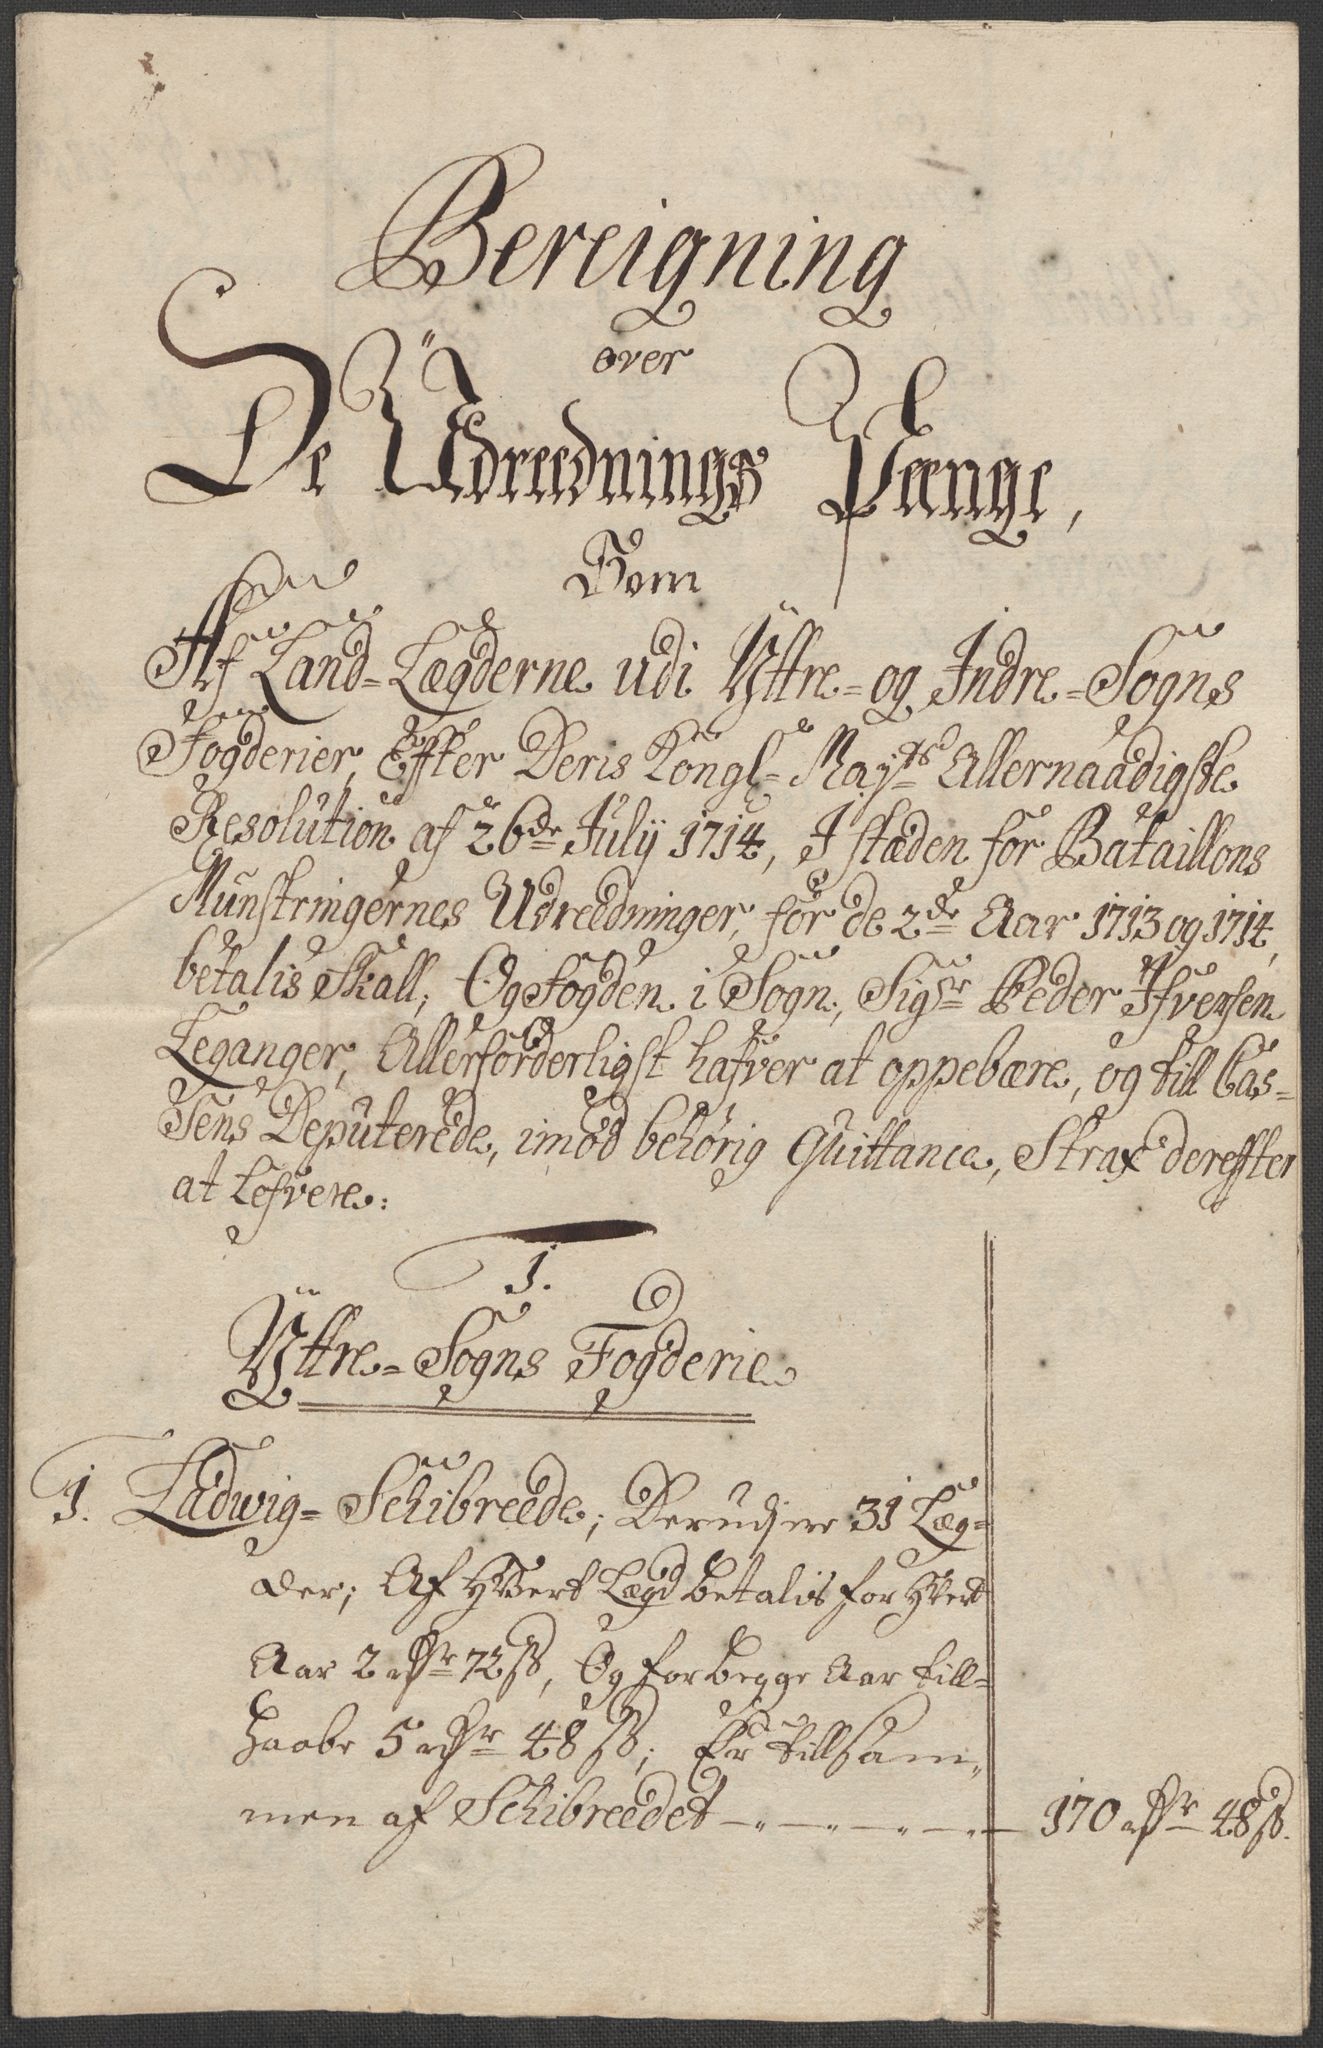 Bereigning
over
De Udreednings Penge,
Som
Af Land-Lægderne udi Yttre- og Indre-Sogns
Fogderier, Effter Deris Kongl- Mayts Allernaadigste
Resolution af 26de July 1714, I stæden for Bataillons
Munstringernes Udreedninger, for de 2de Aar 1713 og 1714,
betalis skall; Og Fogden i Sogn, Sigr Peder Ifversen
Leganger, Allerforderligst hafver at oppebære, og till Cas-
sens Deputerede, imod behørig Quittance, Strax dereffter
at Lefvere:
1.
Yttre-Sogns Fogderie
1. Ladwig-Schibreede; Derudj ere 31 Læg-
der; Af Hvert Lægd betalis for Hvert
Aar 2 rdr 72 ß, Og for begge Aar till-
haabe 5 rdr 48 ß; Er tillsam-
men af Schibreedet 170 rdr 48 ß.